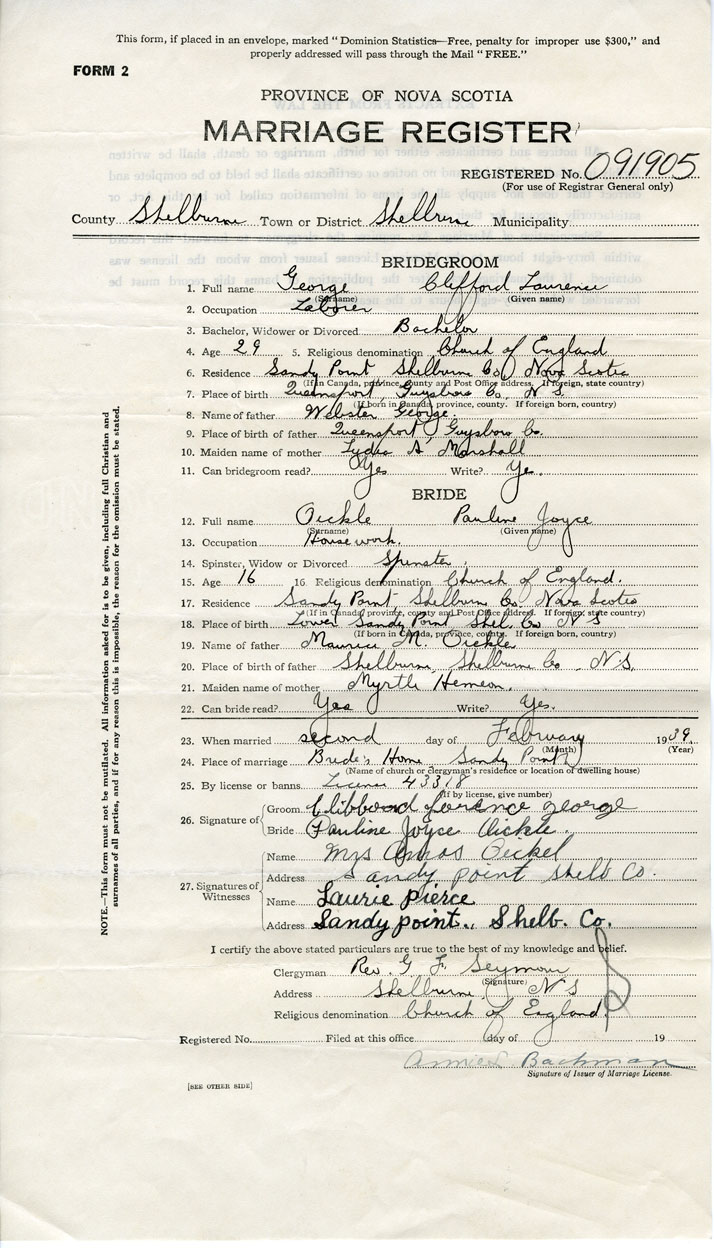 This form, if placed in an envelope, marked "Dominion Statistics—Free, penalty for improper use $300," and
properly addressed will pass through the Mail "FREE."
FORM 2
PROVINCE OF NOVA SCOTIA
MARRIAGE REGISTER
REGISTERED No. 091905
(For use of Registrar General only)
County Shelburne Town or District Shelburne Municipality
BRIDEGROOM
1. Full name George Clifford Laurence
(Surname) (Given name)
2. Occupation Laborer
3. Bachelor, Widower or Divorced Bachelor
4. Age 29 5. Religious denomination Church of England
6. Residence Sandy Point Shelburne Co. Nova Scotia
(If in Canada, province, county and Post Office address. If foreign, state country)
7. Place of birth Queensport, Guysboro Co., N S.
(If born in Canada, province, county. If foreign born, country)
8. Name of father Webster George.
9. Place of birth of father Queensport, Guysboro Co.
10. Maiden name of mother Lydia A Marshall
11. Can bridegroom read? Yes Write? Yes.
BRIDE
12. Full name Oickle Pauline Joyce
(Surname) (Given name)
13. Occupation Housework.
14. Spinster, Widow or Divorced Spinster.
15. Age 16 16 Religious denomination Church of England.
17. Residence Sandy Point Shelburne Co. Nova Scotia
(If in Canada, province, county and Post Office address. If foreign, state country)
18. Place of birth Lower Sandy Point Shel. Co N S
(If born in Canada, province, county. If foreign born, country)
19. Name of father Maurice M. Oickle
20. Place of birth of father Shelburne, Shelburne Co. N.S.
21. Maiden name of mother Myrtle Hemeon.
22. Can bride read? Yes Write? Yes.
23. When married second day of February 1939.
(Month) (Year)
24. Place of marriage Bride's Home Sandy Point
(Name of church or clergyman's residence or location of dwelling house)
25. By license or banns License 43378
(If by license, give number)
26. Signature of Groom george
Bride Pauline Joyce Oickle.
27. Signatures of Witnesses
Name Mrs Amos Oickel
Address Sandy point Shelb Co.
Name Laurie Pierce
Address Sandy point., Shelb. Co.
I certify the above stated particulars are true to the best of my knowledge and belief.
Clergyman Rev. G F. Seymour
(Signature)
Address Shelburne, N S
Religious denomination Church of England.
Registered No. Filed at this office day of 19
Bachman
Signature of Issuer of Marriage License.
[SEE OTHER SIDE]
NOTE.—This form must not be mutilated. All information asked for is to be given, including full Christian and
surnames of all parties, and if for any reason this is impossible, the reason for the omission must be stated.